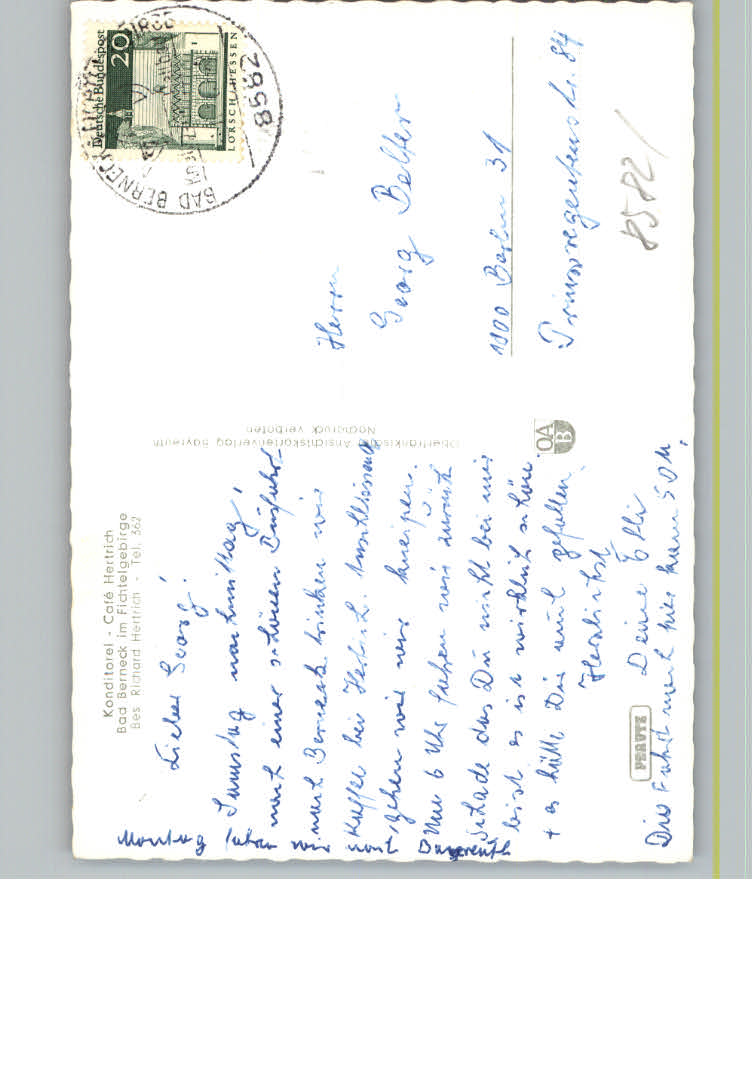 Konditorei - Café Hertrich
Bad Berneck im Fichtelgebirge
Bes. Richard Hertrich - Tel. 362
Lieber Georg!
Samstag nachmittag,
nach einer schönen Busfahrt
nach Berneck trinken wir
Kaffee bei Hertrich. Anschliessend
gehen wir neu kneipen.
Um 6 Uhr fahren wir zurück
Schade das Du nicht bei mir
bist es ist wirklich schön.
+ es hätte Dir auch gefallen.
Herzlichst
Deine Elli
Die Fahrt nach hier kam 5 DM.
Montag fahren wir nach Bayreuth
Oberfränkische Ansichtskartenverlag Bayreuth
Nachdruck verboten
OA
B
PERUTZ
Deutsche Bundespost
20
LORSCH/HESSEN
BAD BERNECK
8582
Herrn
Georg
1000 Berlin 31
Prinzregentenstr. 84
8582/